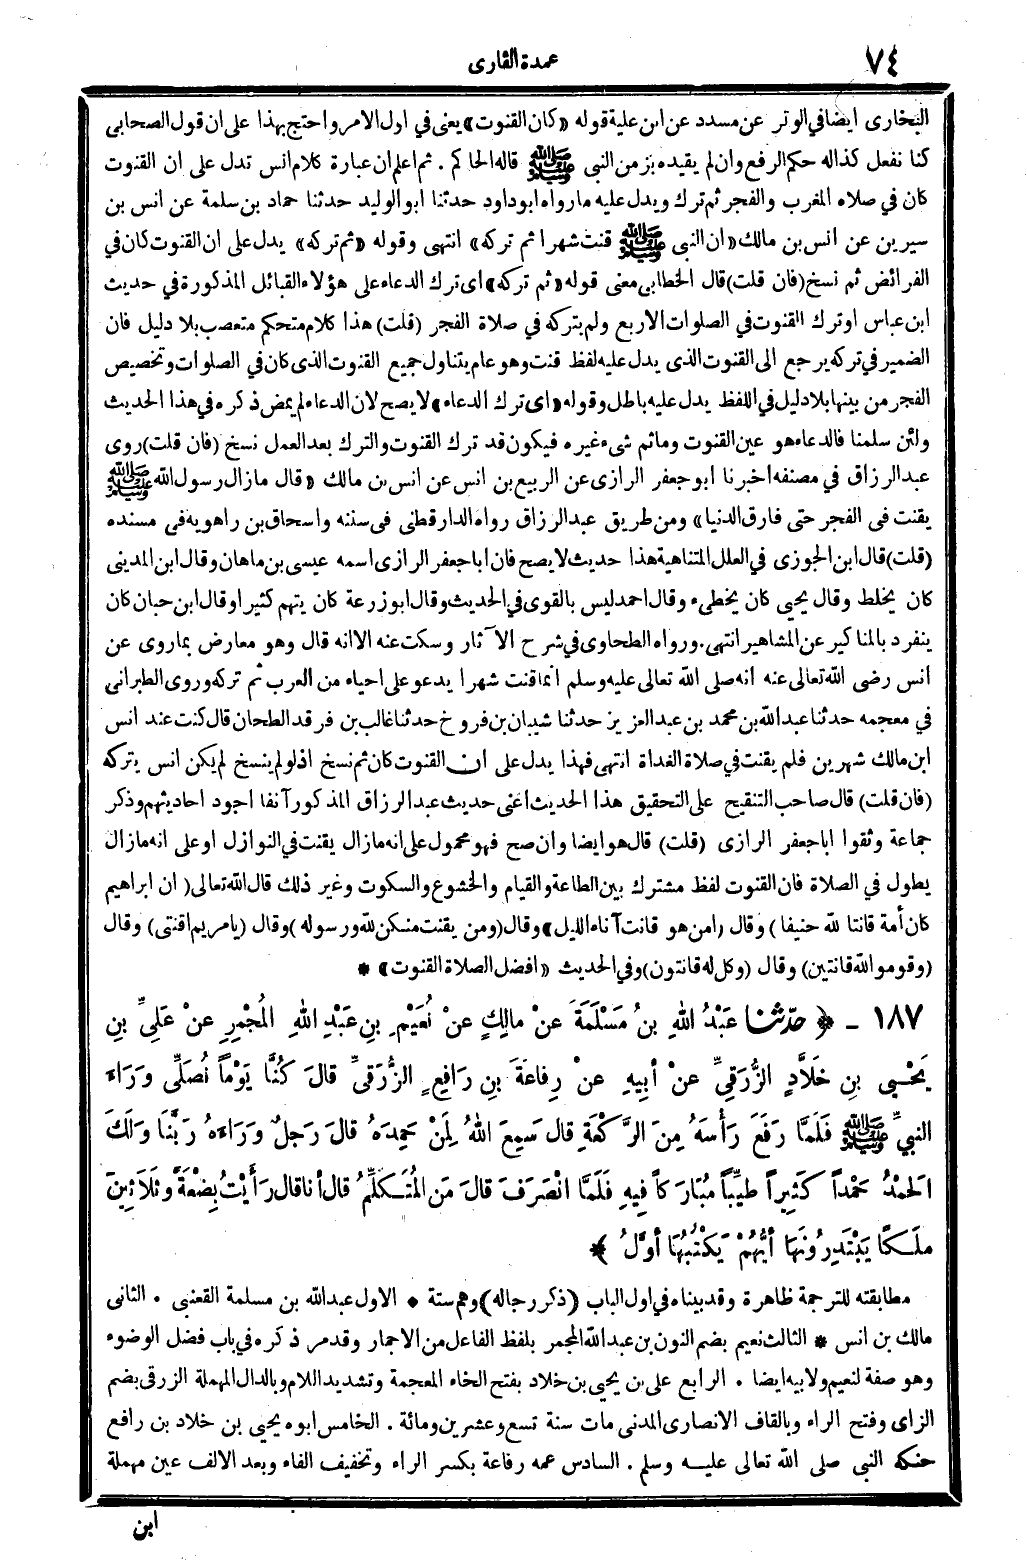 ٧٤
عمدة القارى
البخارى ايضا فى الوتر عن مسدد عن ابن علية قوله «كان القنوت» يعنى فى اول الامر واحتج بهذا على ان قول الصحابى
كنا نفعل كذا له حكم الرفع وان لم يقيده بزمن النبى ﷺ قاله الحاكم . ثم اعلم ان عبارة كلام انس تدل على ان القنوت
كان فى صلاه المغرب والفجر ثم ترك ويدل عليه مارواه ابو داود حدثنا ابو الوليد حدثنا حماد بن سلمة عن انس بن
سيرين عن انس بن مالك «ان النبى ﷺ قنت شهرا ثم تركه» انتهى وقوله «ثم تركه» يدل على ان القنوت كان فى
الفرائض ثم نسخ (فان قلت) قال الخطابى معنى قوله «ثم تركه» اى ترك الدعاء على هؤلاء القبائل المذكورة فى حديث
ابن عباس او ترك القنوت فى الصلوات الاربع ولم يتركه فى صلاة الفجر (قلت) هذا كلام متحكم متعصب بلا دليل فان
الضمير فى تركه يرجع الى القنوت الذى يدل عليه لفظ قنت وهو عام يتناول جميع القنوت الذى كان فى الصلوات وتخصيص
الفجر من بينها بلا دليل فى اللفظ يدل عليه باطل وقوله «اى ترك الدعاء» لا يصح لان الدعاء لم يمض ذكره فى هذا الحديث
ولئن سلمنا فالدعاء هو عين القنوت وما ثم شىء غيره فيكون قد ترك القنوت والترك بعد العمل نسخ (فان قلت) روى
عبد الرزاق فى مصنفه اخبرنا ابو جعفر الرازى عن الربيع بن انس عن انس بن مالك «قال مازال رسول الله ﷺ
يقنت فى الفجر حتى فارق الدنيا» ومن طريق عبد الرزاق رواه الدارقطنى فى سننه واسحاق بن راهويه فى مسنده
(قلت) قال ابن الجوزى فى العلل المتناهية هذا حديث لا يصح فان ابا جعفر الرازى اسمه عيسى بن ماهان وقال ابن المدينى
كان يخلط وقال يحيى كان يخطىء وقال احمد ليس بالقوى فى الحديث وقال ابو زرعة كان يتهم كثيرا وقال ابن حبان كان
ينفرد بالمناكير عن المشاهير انتهى. ورواه الطحاوى فى شرح الآثار وسكت عنه الا انه قال وهو معارض بماروى عن
انس رضى الله تعالى عنه انه صلى الله تعالى عليه وسلم انما قنت شهرا يدعو على احياء من العرب ثم تركه وروى الطبرانى
فى معجمه حدثنا عبد الله بن محمد بن عبد العزيز حدثنا شيبان بن فروخ حدثنا غالب بن فرقد الطحان قال كنت عند انس
ابن مالك شهرين فلم يقنت فى صلاة الغداة انتهى فهذا يدل على ان القنوت كان ثم نسخ اذ لو لم ينسخ لم يكن انس يتركه
(فان قلت) قال صاحب التنقيح على التحقيق هذا الحديث اعنى حديث عبد الرزاق المذكور آنفا اجود احاديثهم وذكر
جماعة وثقوا ابا جعفر الرازى (قلت) قال هو ايضا وان صح فهو محمول على انه مازال يقنت فى النوازل او على انه مازال
يطول فى الصلاة فان القنوت لفظ مشترك بين الطاعة والقيام والخشوع والسكوت وغير ذلك قال الله تعالى (ان ابراهيم
كان أمة قانتا لله حنيفا) وقال (امن هو قانت آناء الليل) وقال (ومن يقنت منكن لله ورسوله) وقال (يا مريم اقنتى) وقال
(وقوموا لله قانتين) وقال (وكل له قانتون) وفى الحديث «افضل الصلاة القنوت» *
١٨٧ - ﴿ حدثنا عَبْدُ اللهِ بنُ مَسْلَمَةَ عنْ مالِكٍ عنْ نُعَيْمِ بنِ عَبْدِ اللهِ المُجْمِرِ عنْ عَلِىِّ بنِ
يَحْيى بنِ خَلَّادٍ الزُّرَقِيِّ عنْ أبيهِ عنْ رِفاعَةَ بنِ رَافِعٍ الزُّرَقيِّ قالَ كُنَّا يَوْماً نُصَلِّى وَرَاءَ
النبيِّ ﷺ فَلَمَّا رَفَعَ رَأْسَهُ مِنَ الرَّكْعَةِ قال سَمِعَ اللهُ لِمَنْ حَمِدَهُ قالَ رَجلٌ وَرَاءَهُ رَبَّنَا وَلَكَ
الحَمْدُ حَمْداً كَثيراً طيِّباً مُبَارَكاً فيهِ فَلَمَّا انْصَرَفَ قالَ مَنِ المُتَكلِّمُ قال أنا قال رَأَيْتُ بِضْعَةً وثَلاَثِينَ
ملَكاً يَبْتَدِرُونَهَا أيُّهُمْ يَكْتُبُهَا أوَّلُ ﴾
مطابقته للترجمة ظاهرة وقد بيناه فى اول الباب (ذكر رجاله) وهم ستة * الاول عبد الله بن مسلمة القعنبى . الثانى
مالك بن انس * الثالث نعيم بضم النون بن عبد الله المجمر بلفظ الفاعل من الاجمار وقد مر ذكره فى باب فضل الوضوء
وهو صفة لنعيم ولابيه ايضا . الرابع على بن يحيى بن خلاد بفتح الخاء المعجمة وتشديد اللام وبالدال المهملة الزرقى بضم
الزاى وفتح الراء وبالقاف الانصارى المدنى مات سنة تسع وعشرين ومائة . الخامس ابوه يحيى بن خلاد بن رافع
حنكه النبى صلى الله تعالى عليه وسلم . السادس عمه رفاعة بكسر الراء وتخفيف الفاء وبعد الالف عين مهملة
ابن